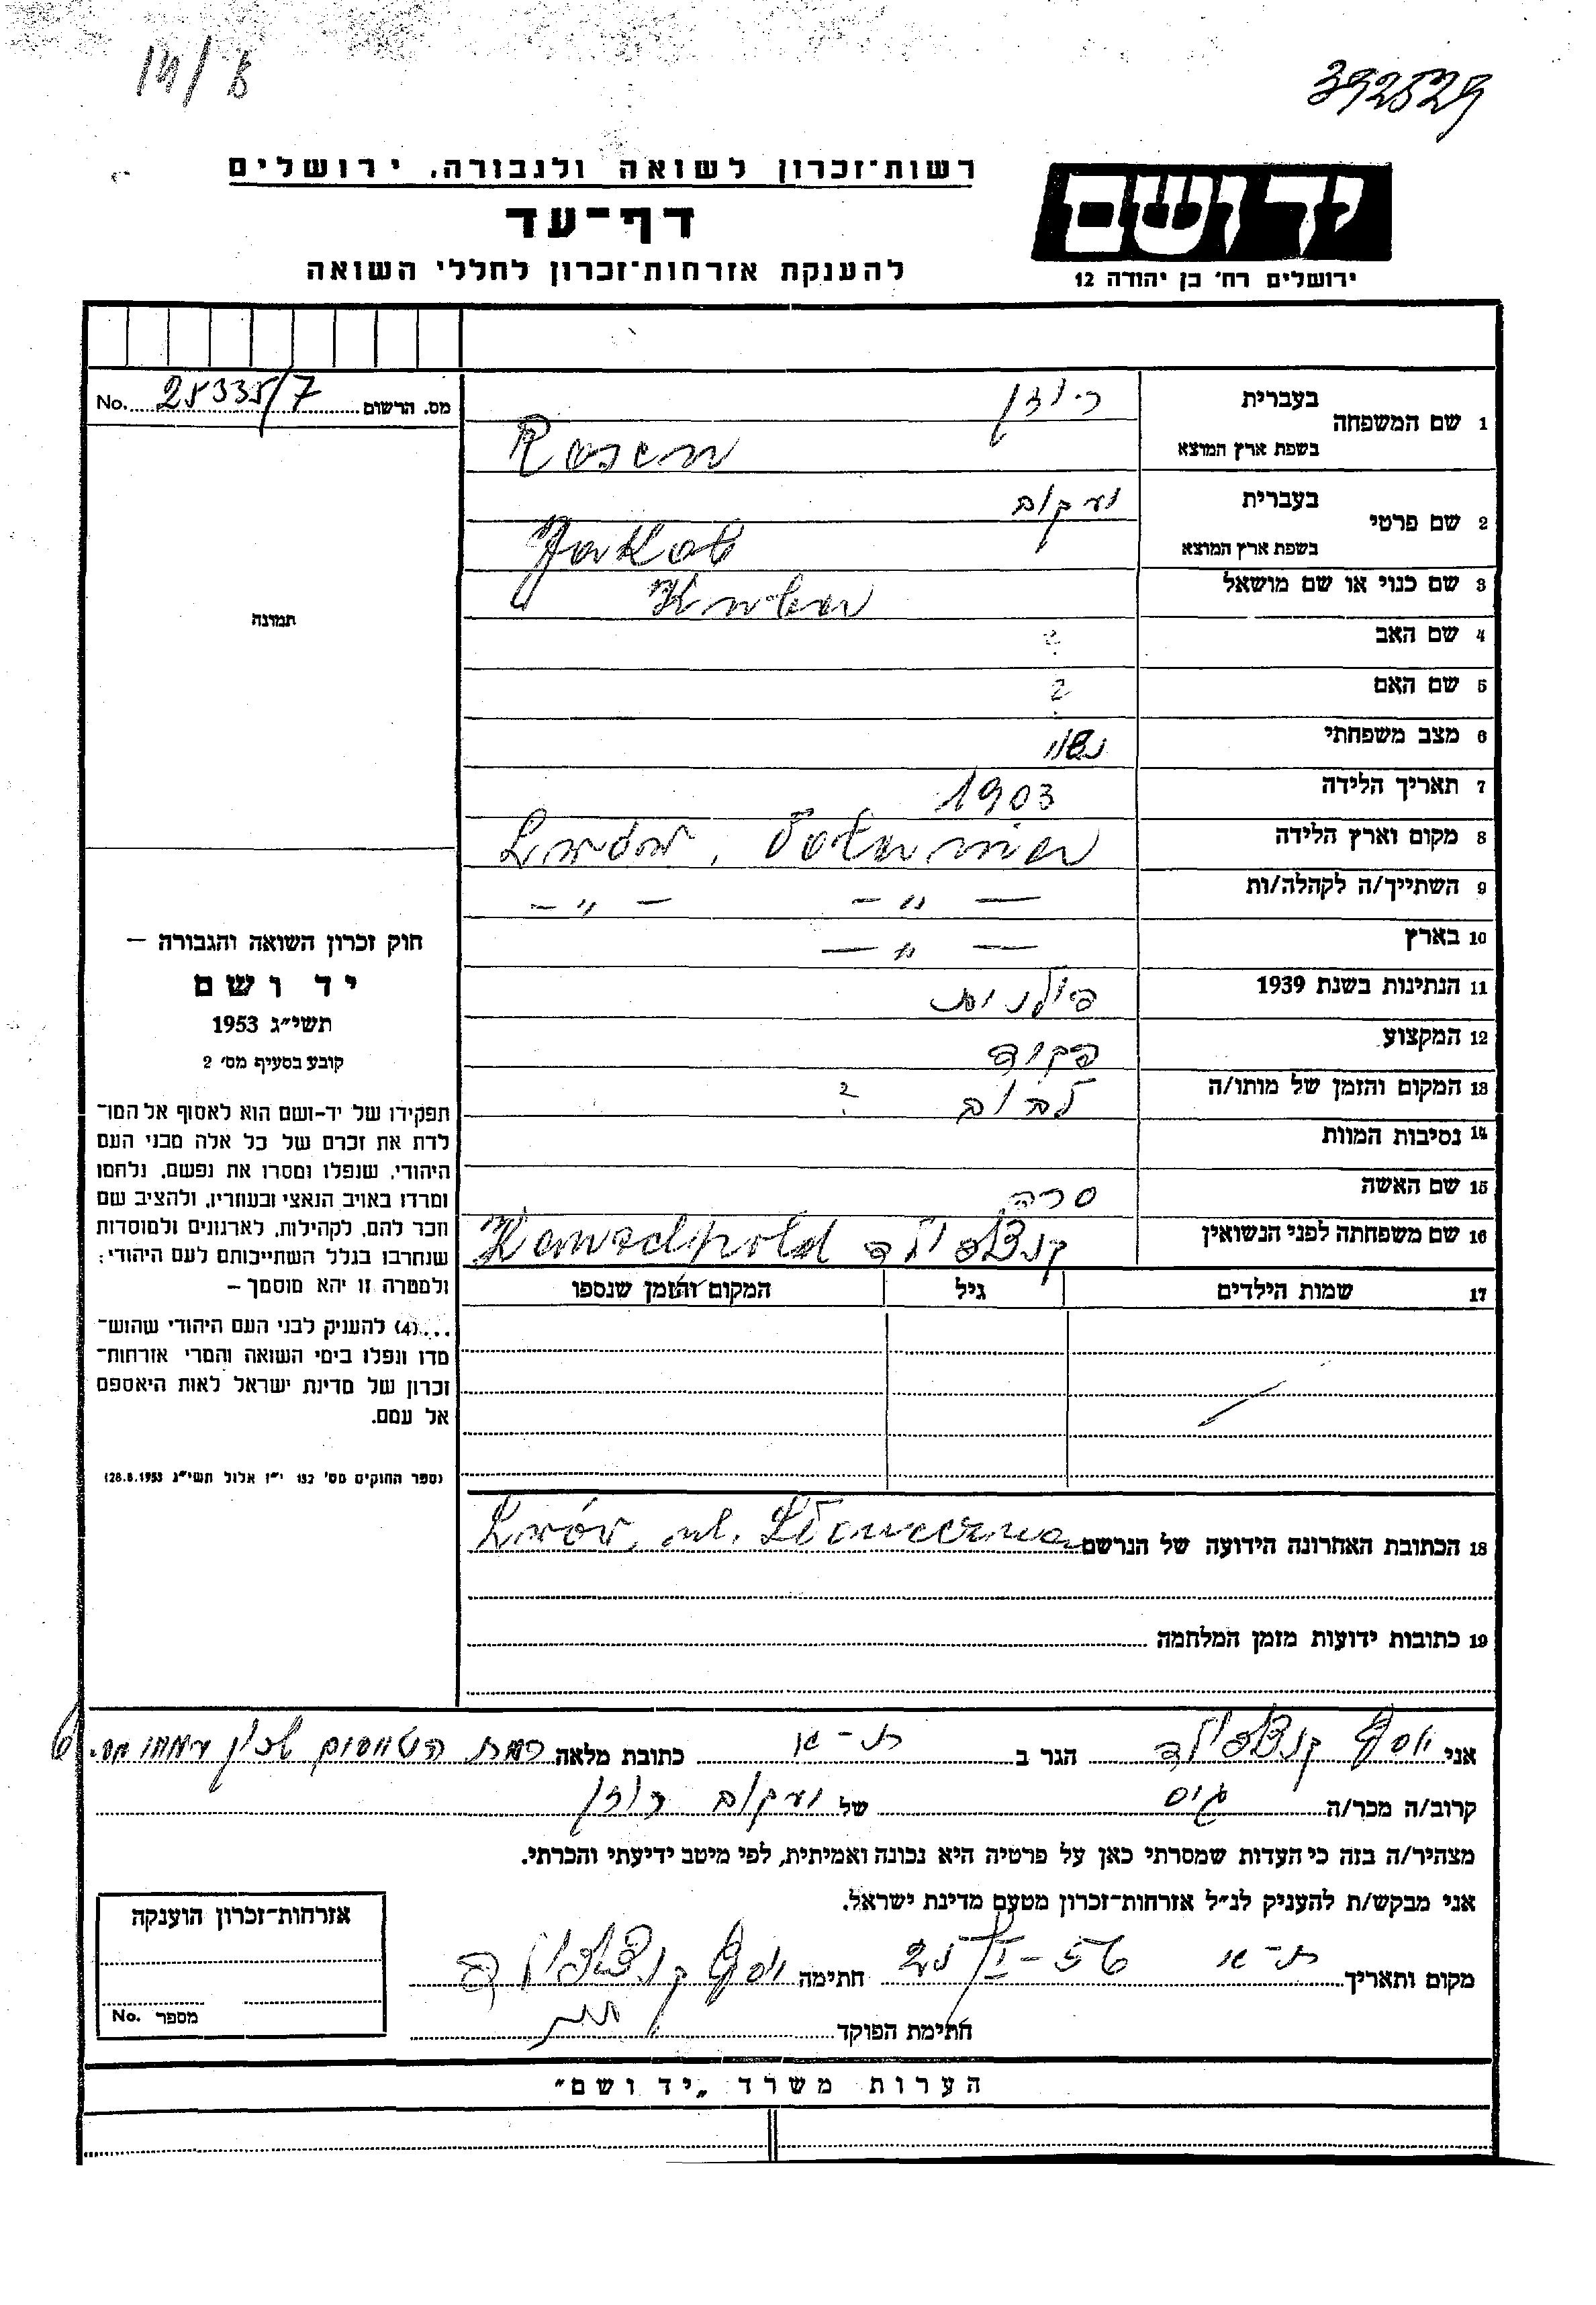 14/8
392529
יד ושם
ירושלים רח' בן יהודה 12
רשות־זכרון לשואה ולגבורה, ירושלים
דף־עד
להענקת אזרחות־זכרון לחללי השואה
מס. הרשום 25335/7 No.
1 שם המשפחה בעברית רוזן
בשפת ארץ המוצא Rosen
2 שם פרטי בעברית יעקוב
בשפת ארץ המוצא Jakob
3 שם כנוי או שם מושאל Kuba
4 שם האב ?
5 שם האם ?
6 מצב משפחתי נשוי
7 תאריך הלידה 1903
8 מקום וארץ הלידה Lwów,
9 השתייך/ה לקהלה/ות — " — — " —
10 בארץ — " —
11 הנתינות בשנת 1939 פולנית
12 המקצוע פקיד
13 המקום והזמן של מותו/ה לבוב ?
14 נסיבות המוות
15 שם האשה שרה
16 שם משפחתה לפני הנשואין
17 שמות הילדים גיל המקום והזמן שנספו
18 הכתובת האחרונה הידועה של הנרשם Lwów, ul. Słoneczna
19 כתובות ידועות מזמן המלחמה
תמונה
חוק זכרון השואה והגבורה —
יד ושם
תשי״ג 1953
קובע בסעיף מס' 2
תפקידו של יד-ושם הוא לאסוף אל המו־
לדת את זכרם של כל אלה מבני העם
היהודי, שנפלו ומסרו את נפשם, נלחמו
ומרדו באויב הנאצי ובעוזריו, ולהציב שם
וזכר להם, לקהילות, לארגונים ולמוסדות
שנחרבו בגלל השתייכותם לעם היהודי;
ולמטרה זו יהא מוסמך —
...(4) להעניק לבני העם היהודי שהוש־
מדו ונפלו בימי השואה והמרי אזרחות־
זכרון של מדינת ישראל לאות היאספם
אל עמם.
(ספר החוקים מס' 132 י״ז אלול תשי״ג 28.8.1953)
אני יוסף הגר ב ת־א כתובת מלאה רמת שכון 6
קרוב/ה מכר/ה גיס של יעקוב רוזן
מצהיר/ה בזה כי העדות שמסרתי כאן על פרטיה היא נכונה ואמיתית, לפי מיטב ידיעתי והכרתי.
אני מבקש/ת להעניק לנ״ל אזרחות־זכרון מטעם מדינת ישראל.
מקום ותאריך ת־א 56 חתימה יוסף
חתימת הפוקד
אזרחות־זכרון הוענקה
מספר No.
הערות משרד „יד ושם״